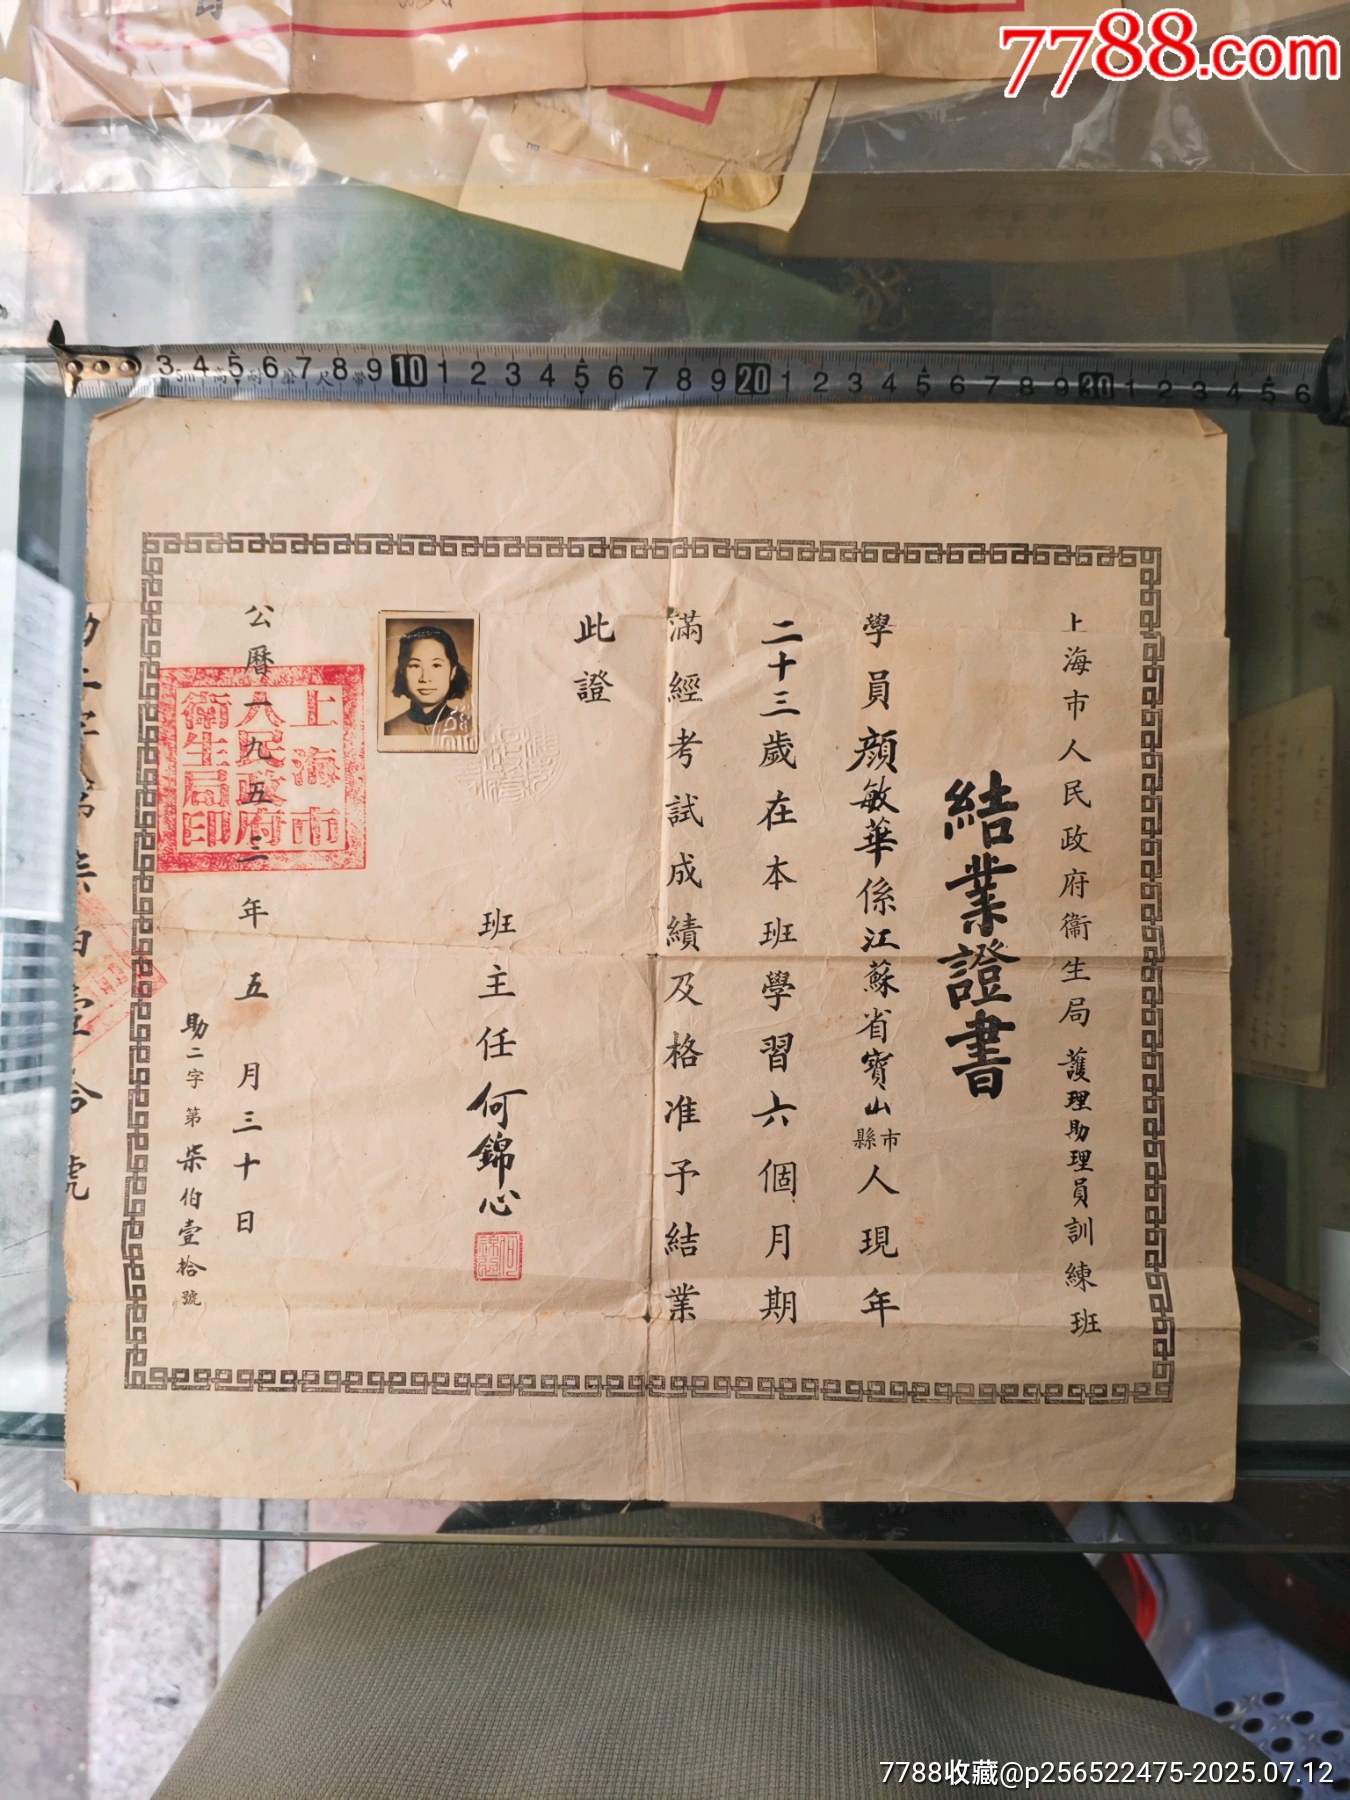 7788.com
3 4 5 6 7 8 9 10 1 2 3 4 5 6 7 8 9 20 1 2 3 4 5 6 7 8 9 30 1 2 3 4 5 6
上海市人民政府衞生局護理助理員訓練班
結業證書
學員顏敏華係江蘇省寶山市縣人現年
二十三歲在本班學習六個月期
滿經考試成績及格准予結業
此證
班主任何錦心
公曆一九五三年五月三十日
上海市
人民政府
衞生局印
助二字第柒伯壹拾號
7788收藏@p256522475-2025.07.12